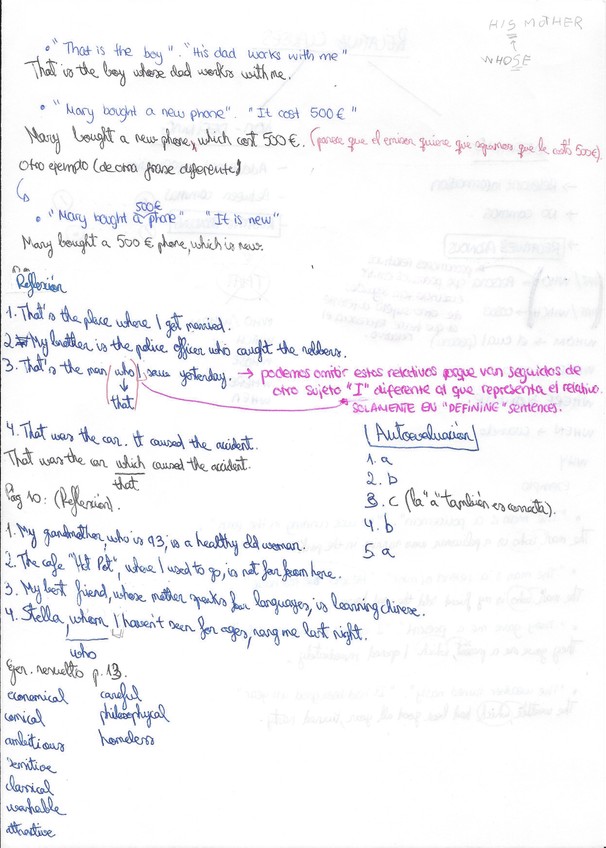 HIS MOTHER
WHOSE
• "That is the boy". "His dad works with me"
That is the boy whose dad works with me.
• "Mary bought a new phone". "It cost 500€"
Mary bought a new phone, which cost 500€. (parece que el emisor quiere que sepamos que le costó 500€).
Otro ejemplo (de otra frase diferente)
500€
• "Mary bought a phone" "It is new"
Mary bought a 500€ phone, which is new.
Reflexión
1. That's the place where I got married.
2. My brother is the police officer who caught the robbers.
3. That's the man who I saw yesterday. → podemos omitir estos relativos porque van seguidos de
otro sujeto "I" diferente al que representa el relativo.
that
* SOLAMENTE EN "DEFINING" sentences.
4. That was the car. It caused the accident.
That was the car which caused the accident.
that
Autoevaluación
1. a
2. b
3. c (la "a" también es correcta).
4. b
5. a
Pág 10: (Reflexión).
1. My grandmother, who is 93, is a healthy old woman.
2. The cafe "Hot Pot", where I used to go, is not far from here.
3. My best friend, whose mother speaks four languages, is learning chinese.
4. Stella, whom I haven't seen for ages, rang me last night.
who
Ejer. resuelto p.13.
economical careful
comical philosophycal
ambitious homeless
sensitive
classical
washable
attractive